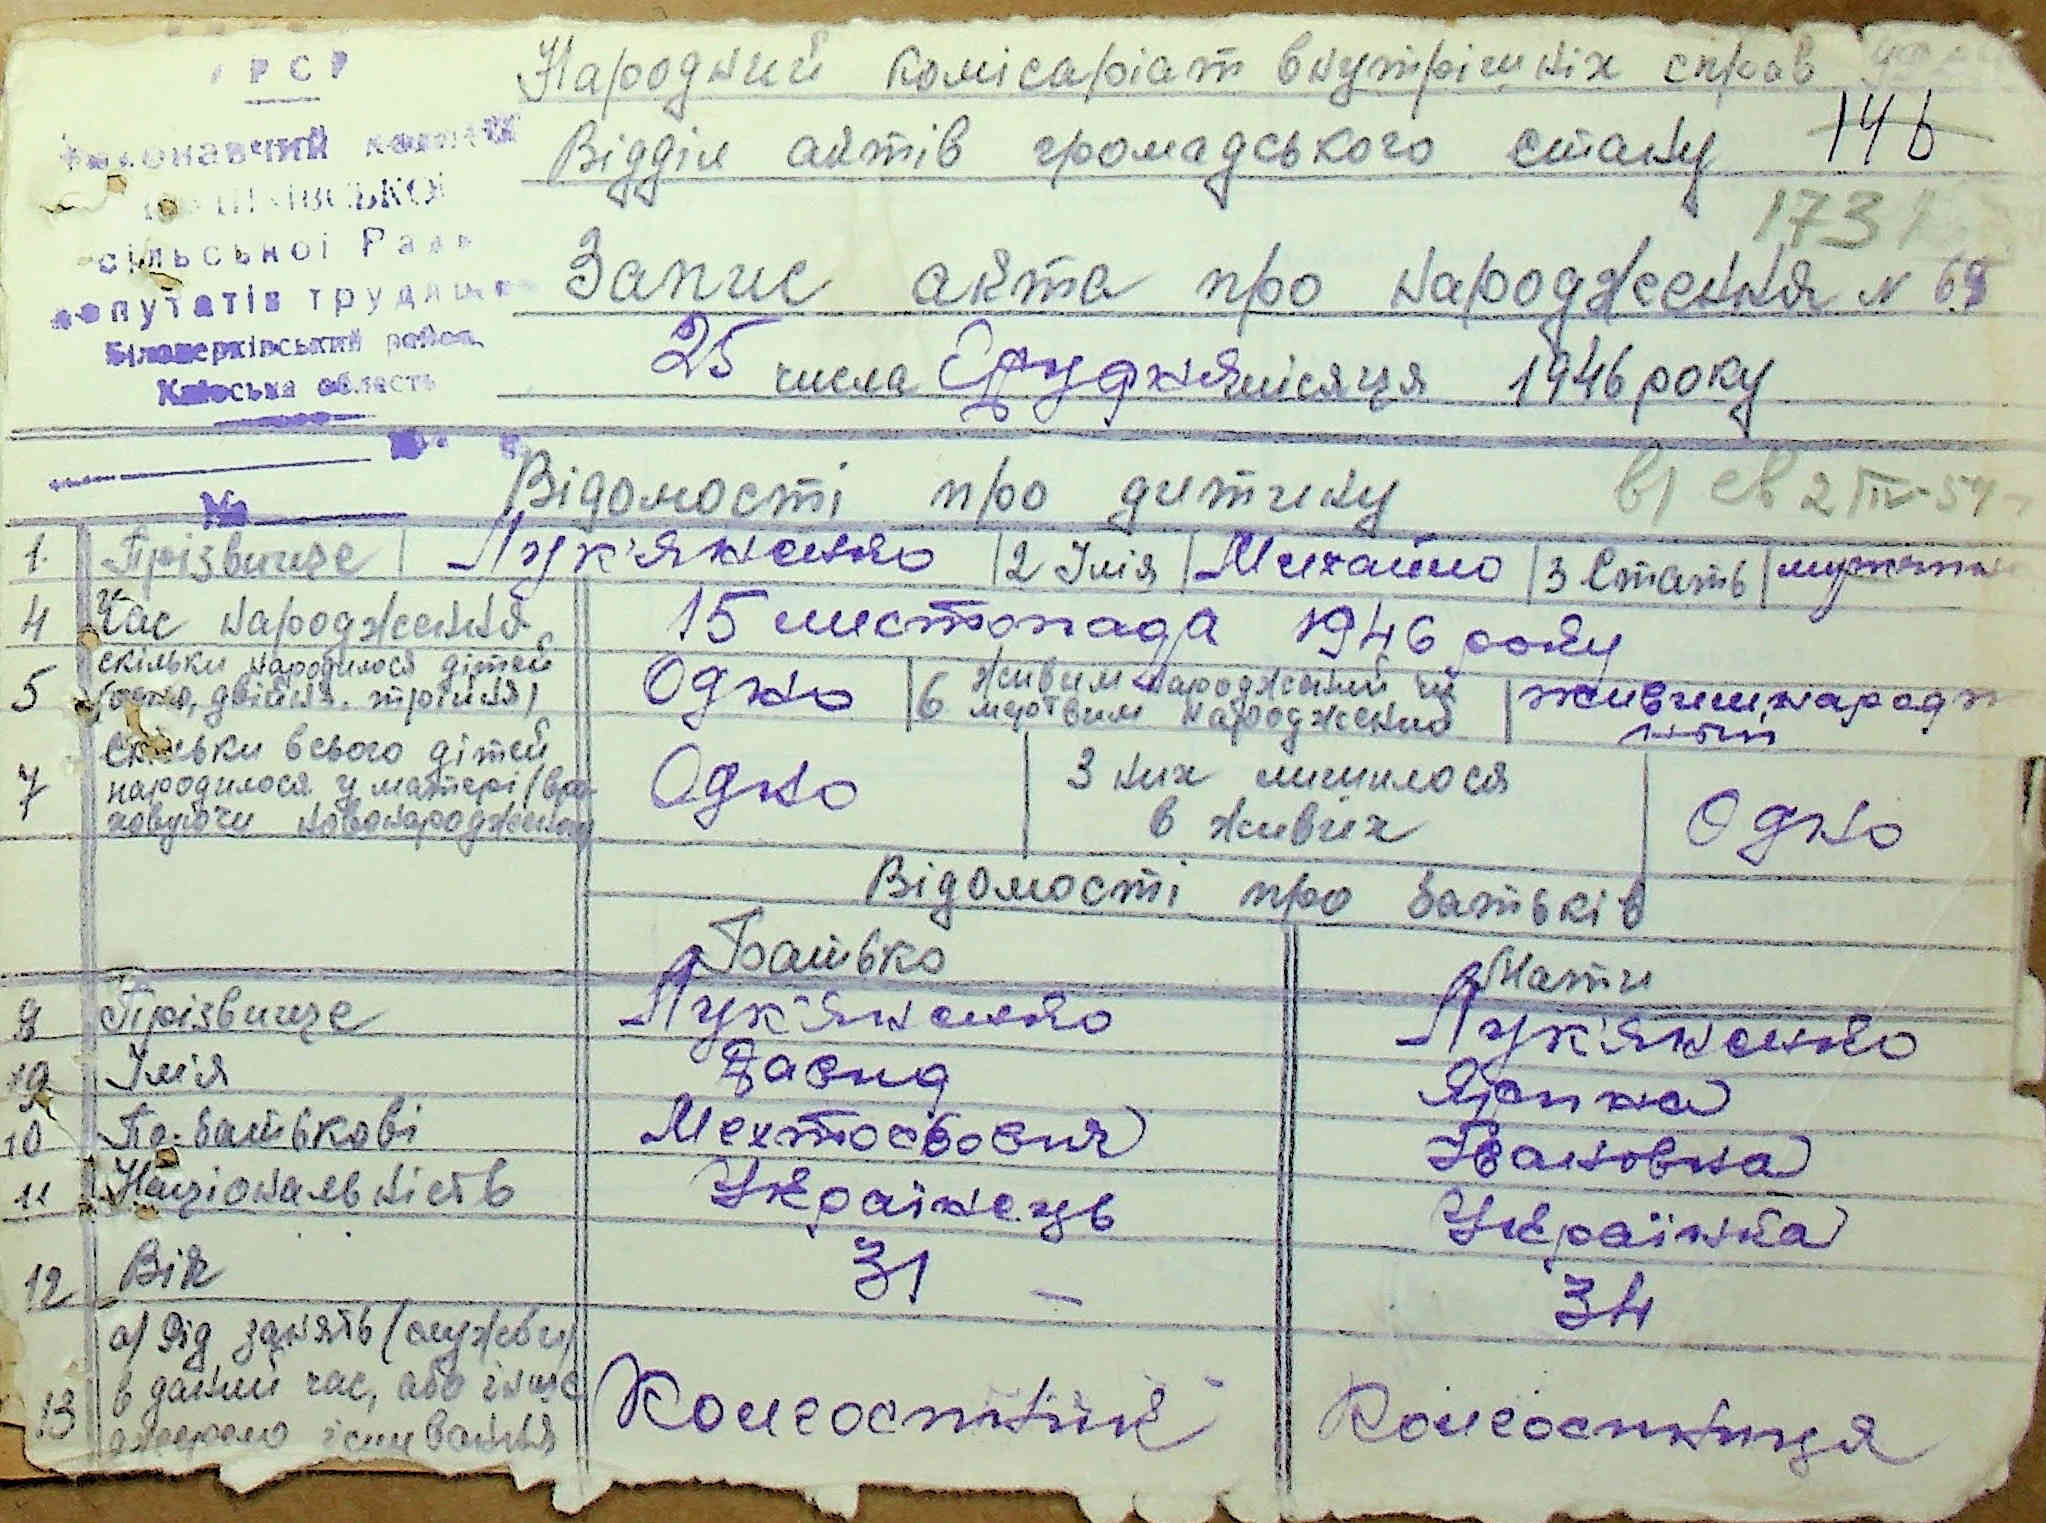 УРСР
Виконавчий комітет
сільської Ради
депутатів трудящих
Білоцерківський район
Київська область
№
Народний комісаріат внутрішніх справ
Відділ актів громадського стану 146
173
Запис акта про народження № 69
25 числа Грудня місяця 1946 року
Відомості про дитину
1. Прізвище Лук'яненко 2 Імія Михайло 3 Стать мужчина
4 Час народження 15 листопада 1946 року
5 скільки народилося дітей (одно, двійня, трійня) Одно 6 живим народжений чи мертвим народжений живим народжений
7 Скільки всього дітей народилося у матері (враховуючи новонароджену Одно З них лишилося в живих Одно
Відомості про батьків
Батько Мати
8 Прізвище Лук'яненко Лук'яненко
9 Імія Давид Ярина
10 По-батькові Мехтодович Івановна
11 Національність Українець Українка
12 Вік 31 – 34
13 а) Рід занять (служби) в даний час, або інше джерело існування Колгоспник Колгоспниця